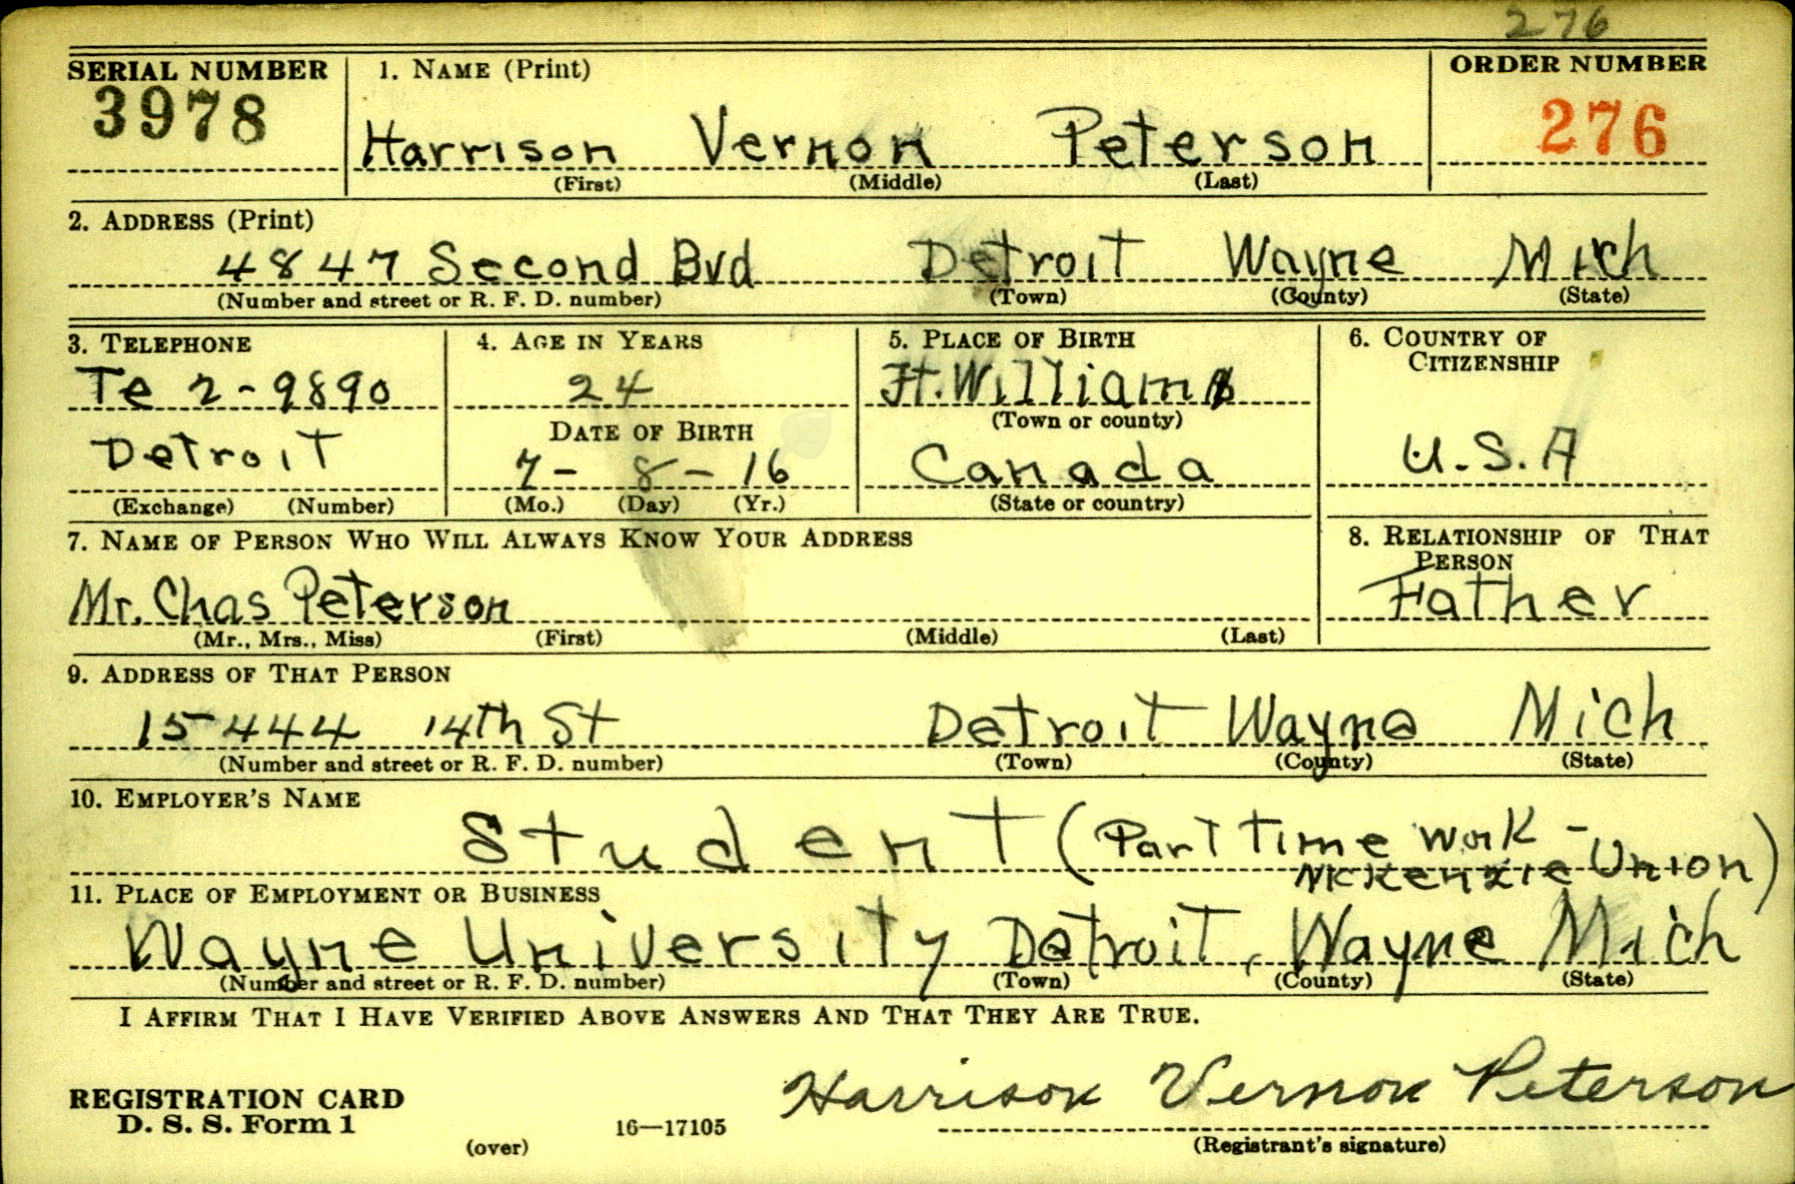 276
SERIAL NUMBER 1. NAME (Print) ORDER NUMBER
3978 Harrison Vernon Peterson 276
(First) (Middle) (Last)
2. ADDRESS (Print)
4847 Second Bvd Detroit Wayne Mich
(Number and street or R. F. D. number) (Town) (County) (State)
3. TELEPHONE 4. AGE IN YEARS 5. PLACE OF BIRTH 6. COUNTRY OF
CITIZENSHIP
Te 2-9890 24 Ft. William
(Town or county)
DATE OF BIRTH
Detroit 7-8-16 Canada U.S.A
(Exchange) (Number) (Mo.) (Day) (Yr.) (State or country)
7. NAME OF PERSON WHO WILL ALWAYS KNOW YOUR ADDRESS 8. RELATIONSHIP OF THAT
PERSON
Mr. Chas Peterson Father
(Mr., Mrs., Miss) (First) (Middle) (Last)
9. ADDRESS OF THAT PERSON
15444 14th St Detroit Wayne Mich
(Number and street or R. F. D. number) (Town) (County) (State)
10. EMPLOYER'S NAME
Student (Part Time Work -
McKenzie Union)
11. PLACE OF EMPLOYMENT OR BUSINESS
Wayne University Detroit, Wayne Mich
(Number and street or R. F. D. number) (Town) (County) (State)
I AFFIRM THAT I HAVE VERIFIED ABOVE ANSWERS AND THAT THEY ARE TRUE.
REGISTRATION CARD Harrison Vernon Peterson
D. S. S. Form 1 16—17105
(over) (Registrant's signature)